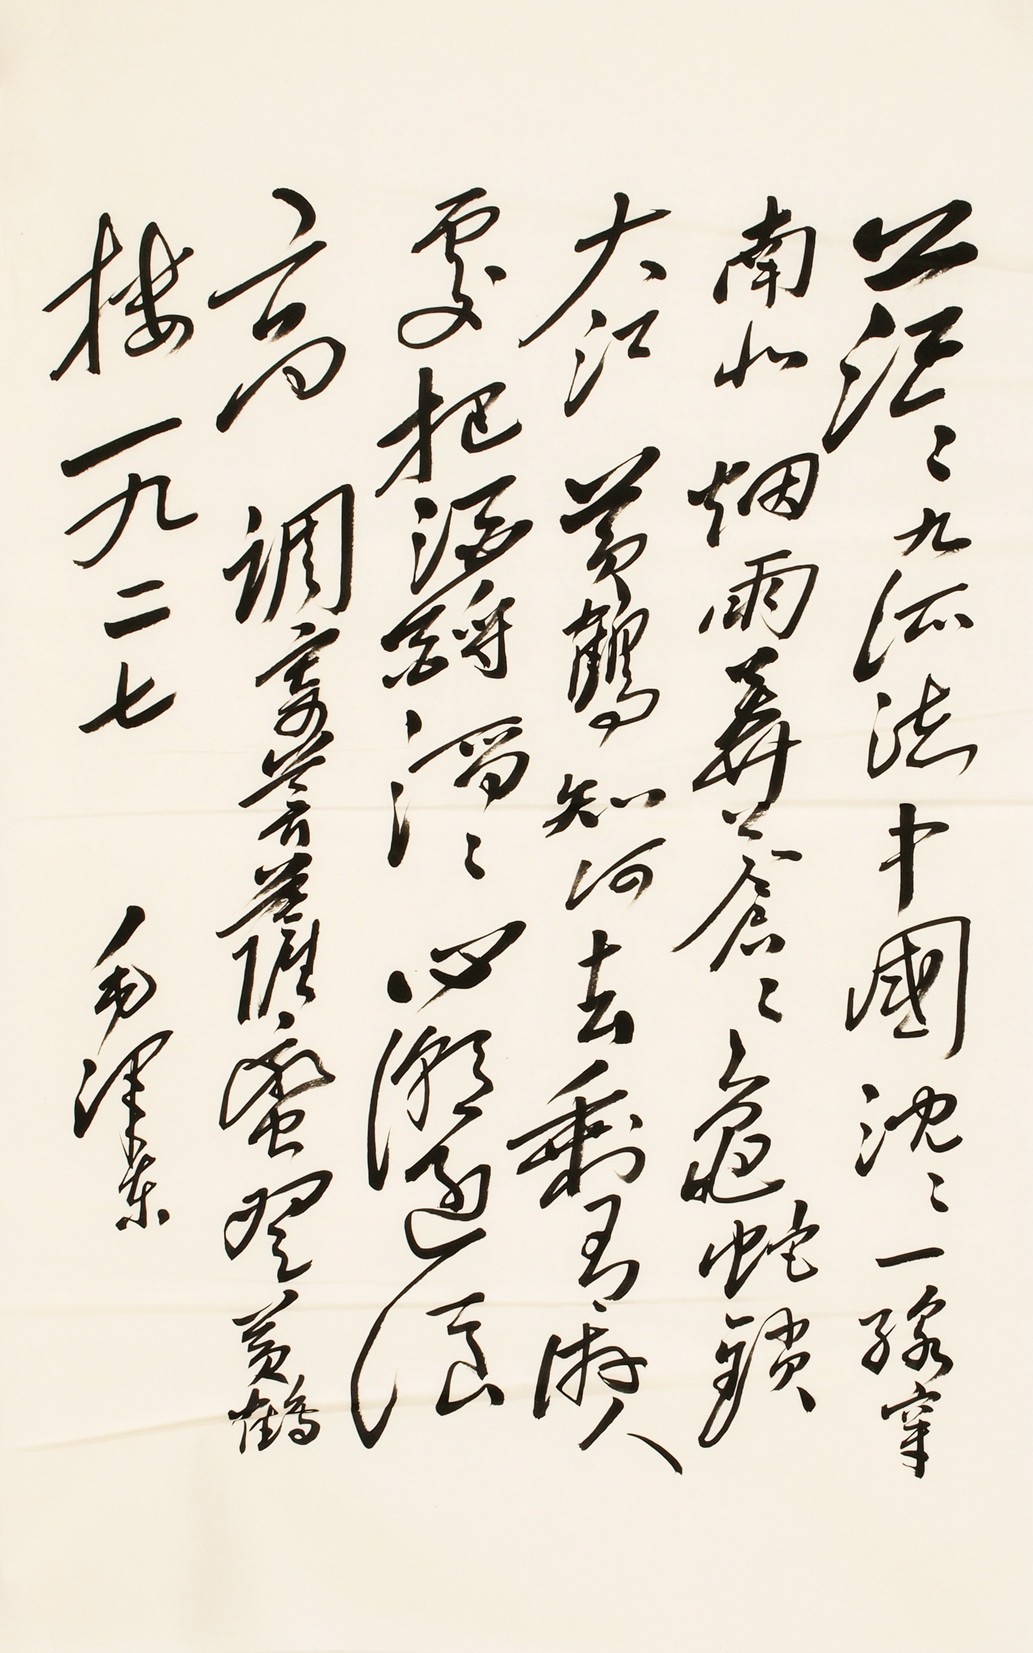 茫〻九派流中國沈〻一線穿
南北烟雨莽蒼〻龜蛇鎖
大江黃鶴知何去剩有游人
處把酒酹滔〻心潮逐浪
高調寄菩薩蠻登黃鶴
樓一九二七毛澤東